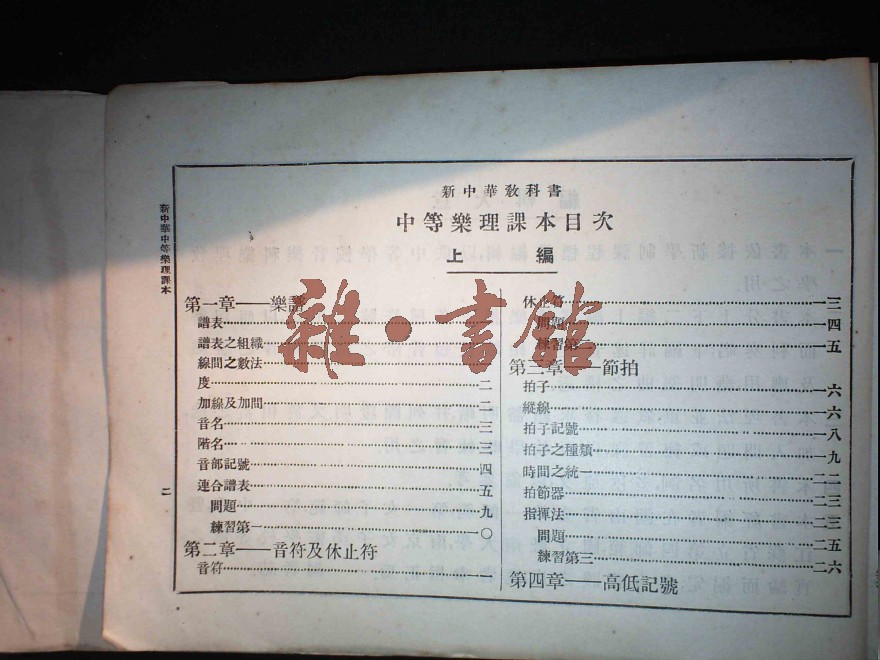 新中華教科書
中等樂理課本目次
上 編
第一章——樂譜
譜表
譜表之組織
線間之數法
度……二
加線及加間……二
音名……三
階名……三
音部記號……四
連合譜表……五
問題……九
練習第一……一〇
第二章——音符及休止符
音符……一一
休止符……一三
問題……一四
練習第二……一五
第三章——節拍
拍子……一六
縱線……一六
拍子記號……一八
拍子之種類……一九
時間之統一……二二
拍節器……二三
指揮法……二三
問題……二五
練習第三……二六
第四章——高低記號
新中華中等樂理課本
二
雜·書館